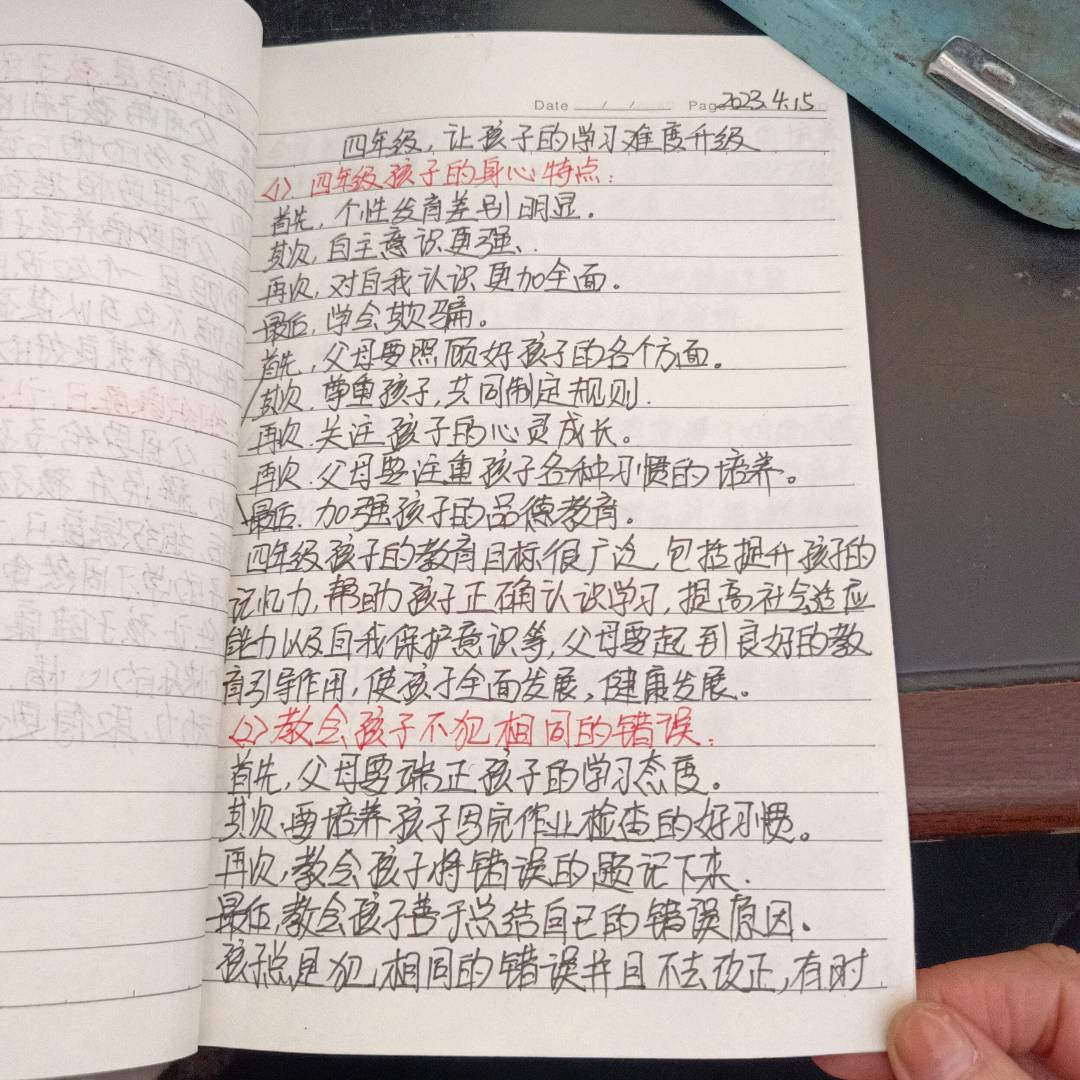 Date / / Page 2023.4.15
四年级，让孩子的学习难度升级
<1> 四年级孩子的身心特点：
首先，个性发育差别明显。
其次，自主意识更强、
再次，对自我认识更加全面。
最后，学会欺骗。
首先，父母要照顾好孩子的各个方面。
其次．尊重孩子，共同制定规则．
再次．关注孩子的心灵成长。
再次．父母要注重孩子各种习惯的培养。
最后．加强孩子的品德教育。
四年级孩子的教育目标很广泛，包括提升孩子的
记忆力，帮助孩子正确认识学习，提高社会适应
能力以及自我保护意识等，父母要起到良好的教
育引导作用，使孩子全面发展，健康发展。
<2> 教会孩子不犯相同的错误：
首先，父母要端正孩子的学习态度。
其次．要培养孩子写完作业检查的好习惯。
再次，教会孩子将错误的题记下来．
最后，教会孩子善于总结自己的错误原因。
孩子总是犯，相同的错误并且不去改正，有时